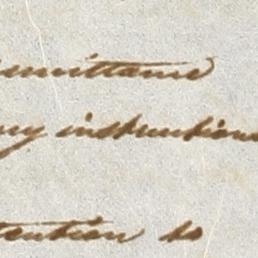 emittance
ny instructions
tention to